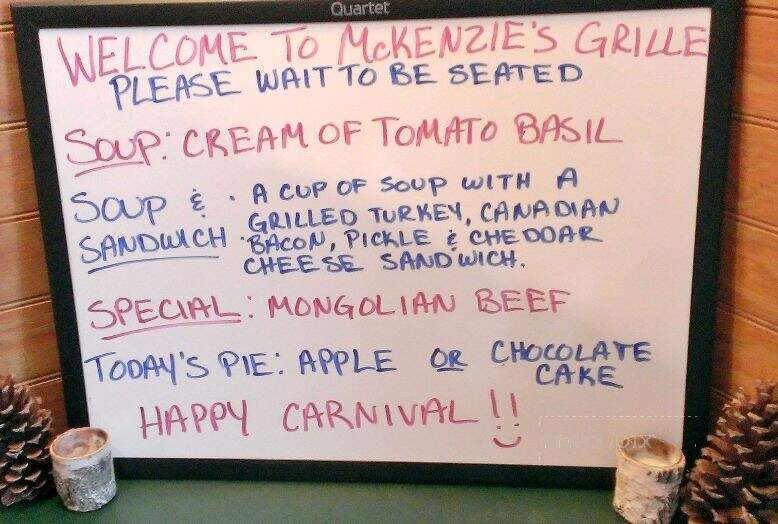 Quartet
WELCOME TO McKENZIE'S GRILLE
PLEASE WAIT TO BE SEATED
SOUP: CREAM OF TOMATO BASIL
SOUP & : A CUP OF SOUP WITH A
SANDWICH GRILLED TURKEY, CANADIAN
BACON, PICKLE & CHEDDAR
CHEESE SANDWICH.
SPECIAL: MONGOLIAN BEEF
TODAY'S PIE: APPLE OR CHOCOLATE
CAKE
HAPPY CARNIVAL !!